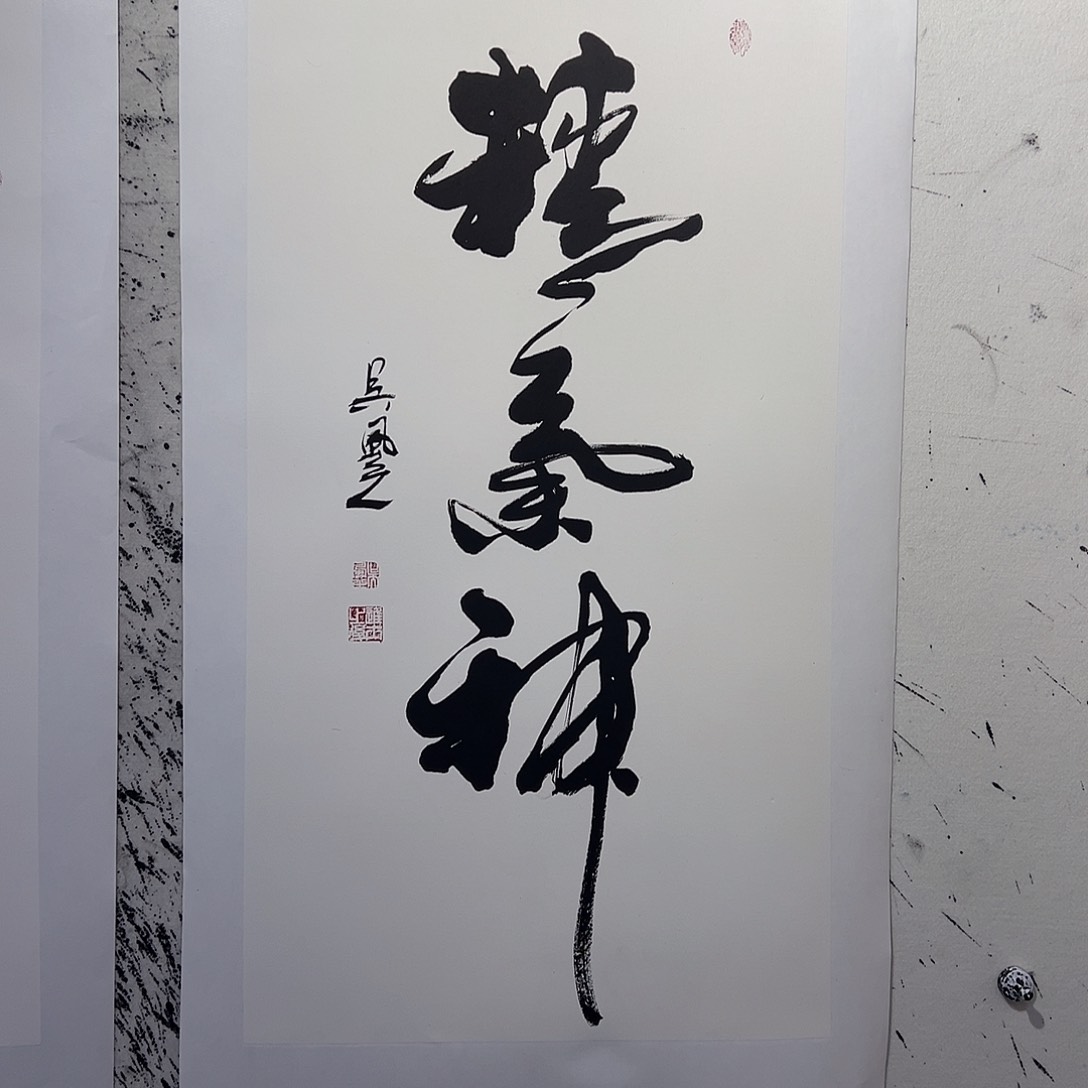 精氣神
吳風之